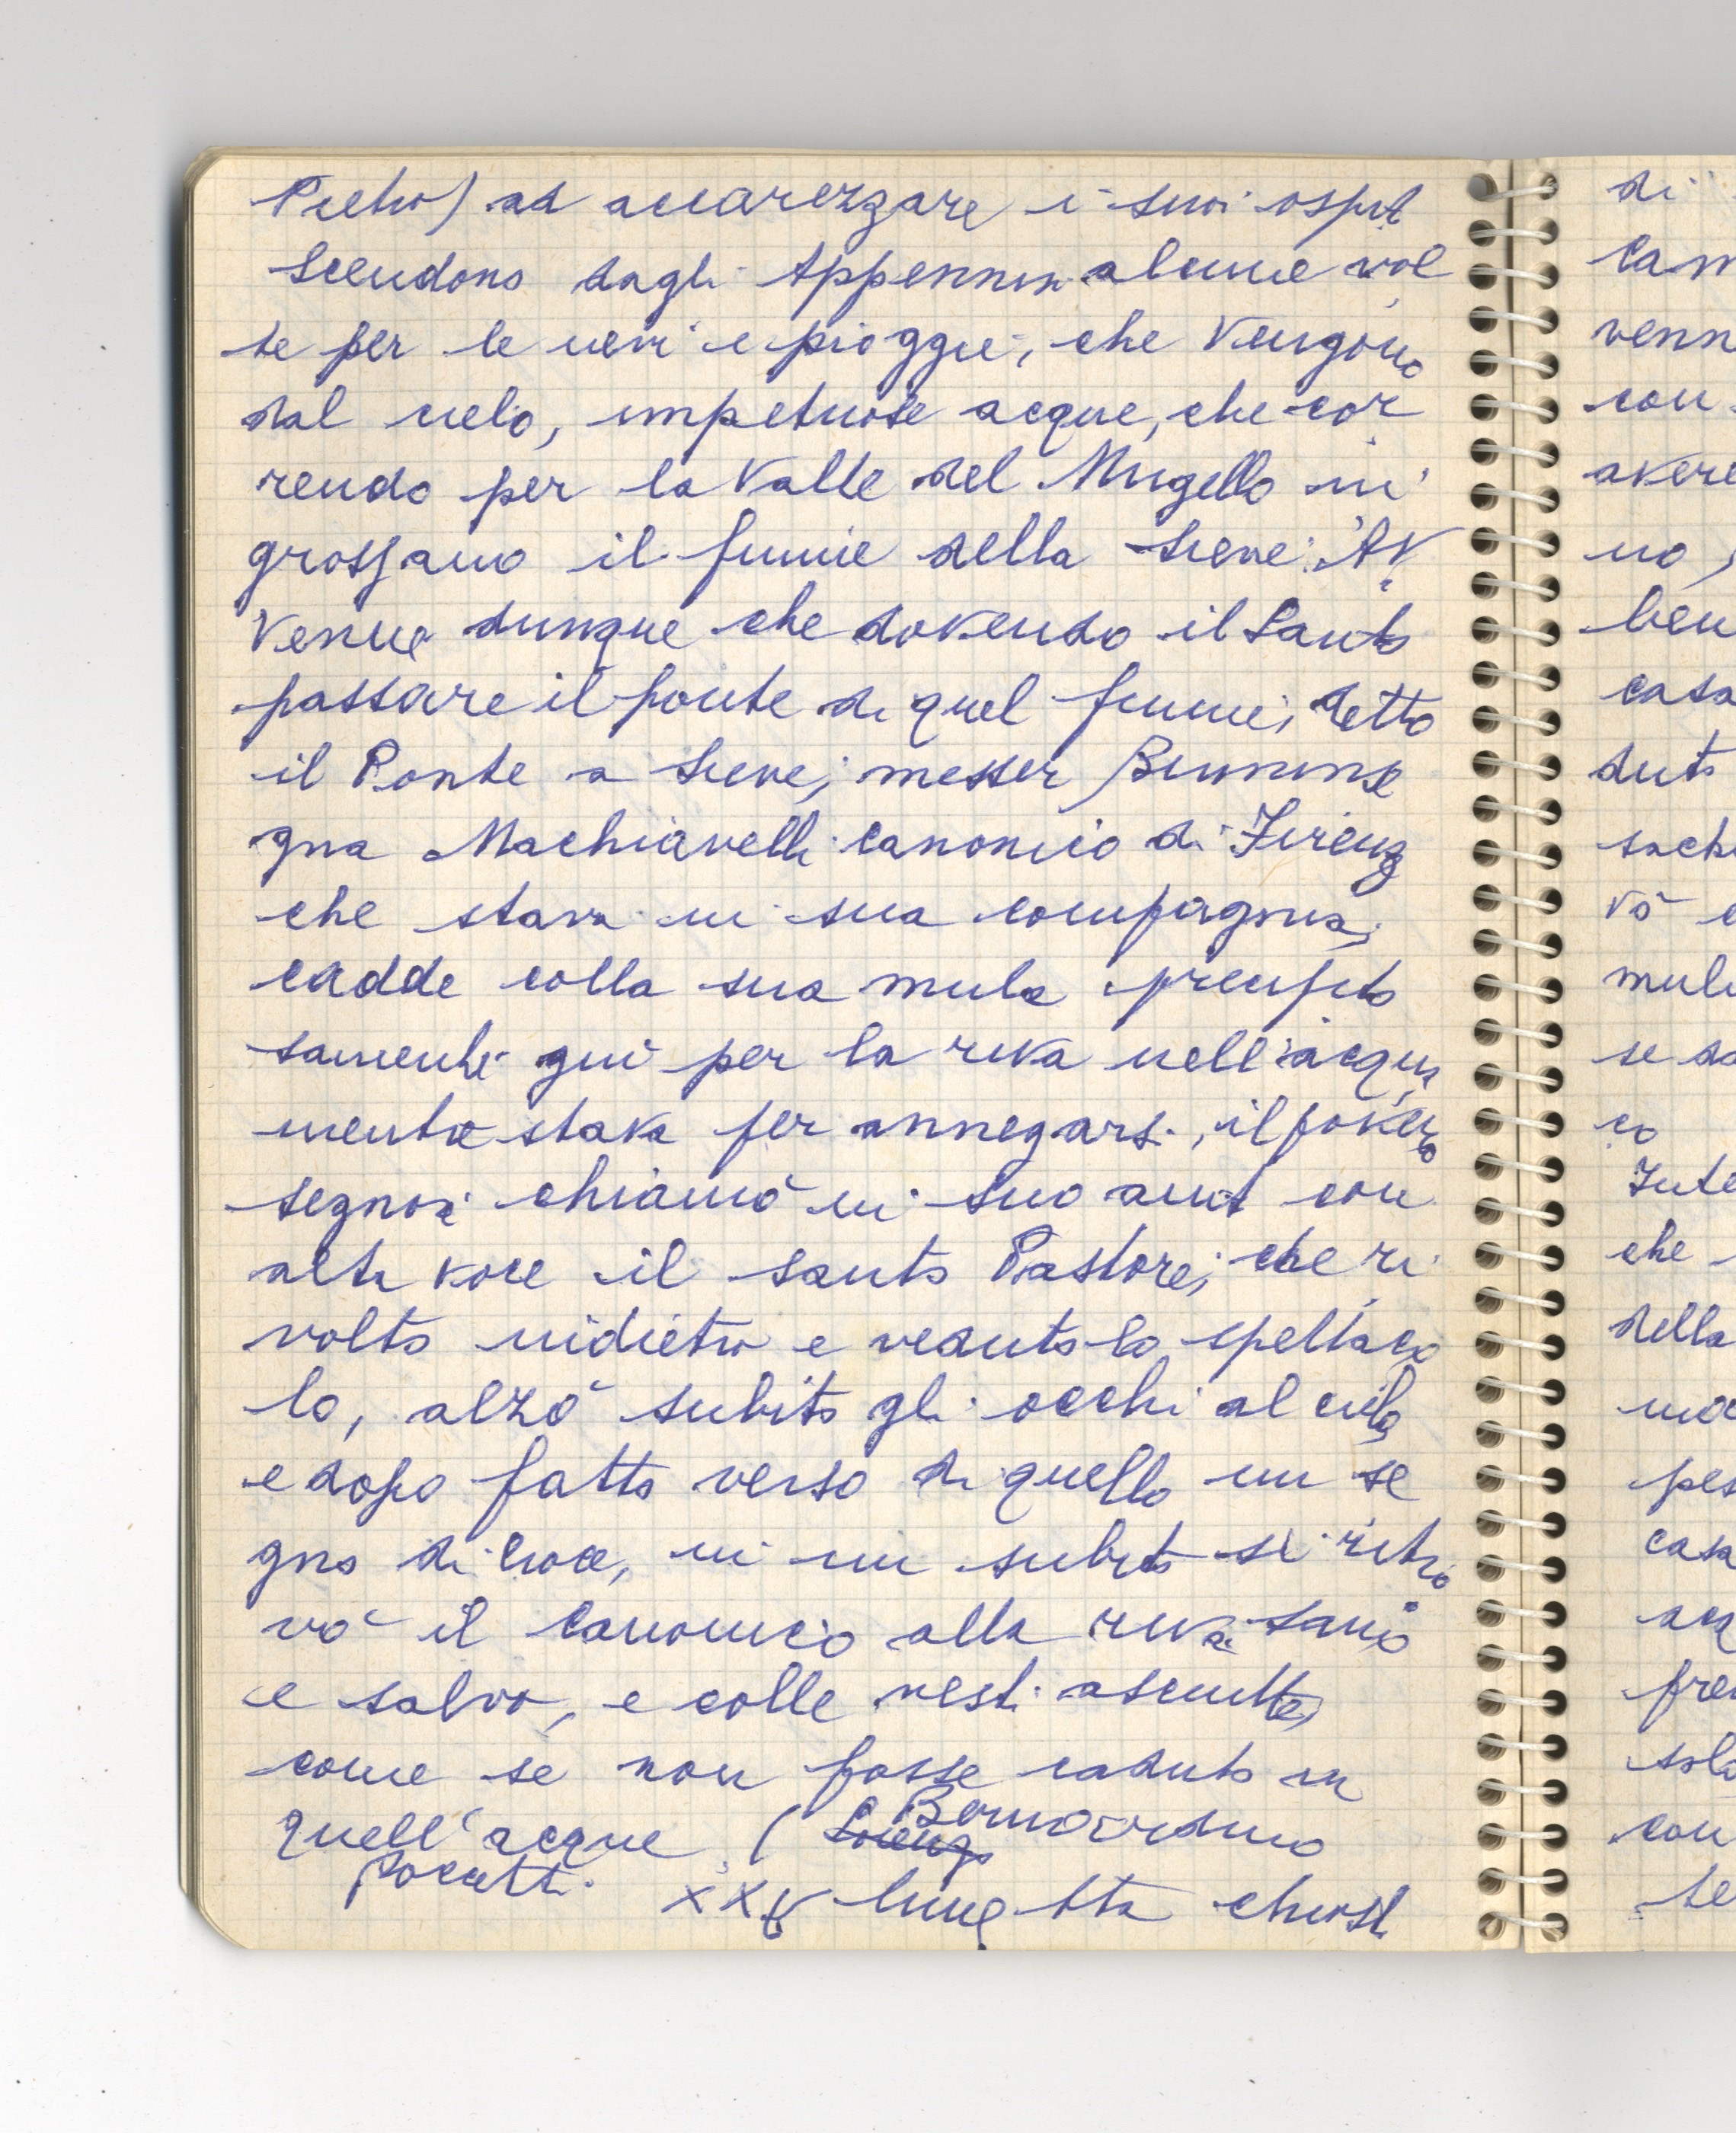 Pietro) ad accarezzare i suoi ospiti
Scendono dagli Appennini alcune vol
te per le nevi e piogge, che vengono
dal cielo, impetuose acque, che cor
rendo per la Valle del Mugello in
grossano il fiume della Sieve. Av
venne dunque che dovendo il Santo
passare il ponte di quel fiume, detto
il Ponte a Sieve, messer Buoninse
gna Machiavelli canonico di Firenze
che stava in sua compagnia,
cadde colla sua mula precipito
samente giù per la riva nell'acqua
mentre stava per annegarsi, il povero
segnore chiamò in suo aiuto con
alta voce il santo Pastore, che ri
volto indietro e veduto lo spettaco
lo, alzò subito gli occhi al cielo
e dopo fatto verso di quello un se
gno di croce, in un subito si ritro
vò il canonico alla riva sano
e salvo, e colle vesti asciutte,
come se non fosse caduto in
quell'acque (Bernardino
Poccetti.
XXV lunetta chiost
di
cam
venn
con
avere
no,
ben
casa
duto
sack
vò
mul
se
co
Inte
che
della
pes
casa
acq
fre
sol
con
te